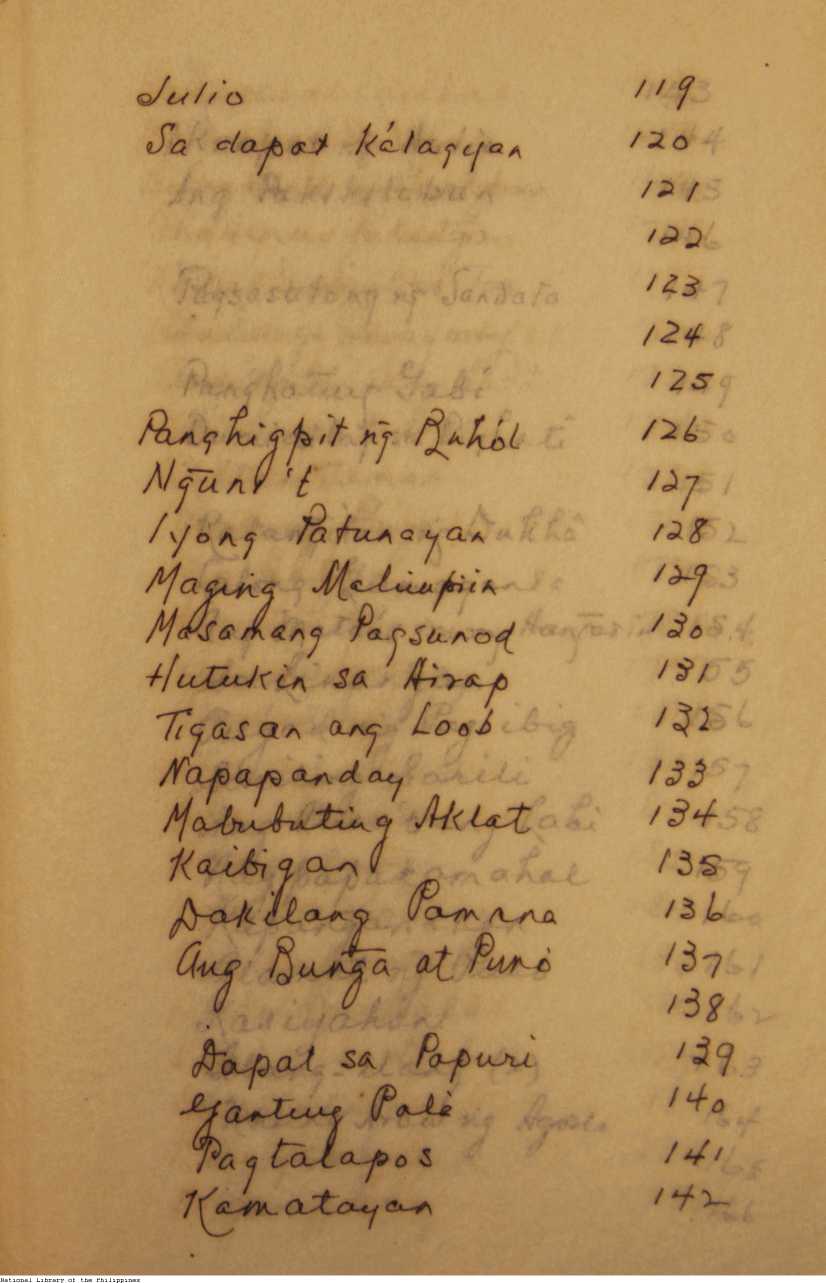 Julio 119
Sa dapat Kálagyan 120
121
122
123
124
125
Panghigpit ng̃ Buhól 126
Ng̃uni't 127
Iyóng Patunayan 128
Maging 129
Masamang Pagsunod 130
Hutukin sa Hirap 131
Tigasan ang Loob 132
Napapanday 133
Mabubuting Aklat 134
Kaibigan 135
Dakilang Pamana 136
Ang Bung̃a at Punò 137
138
Dapat sa Papuri 139
Ganting Palà 140
Pagtatapos 141
Kamatayan 142
National Library of the Philippines